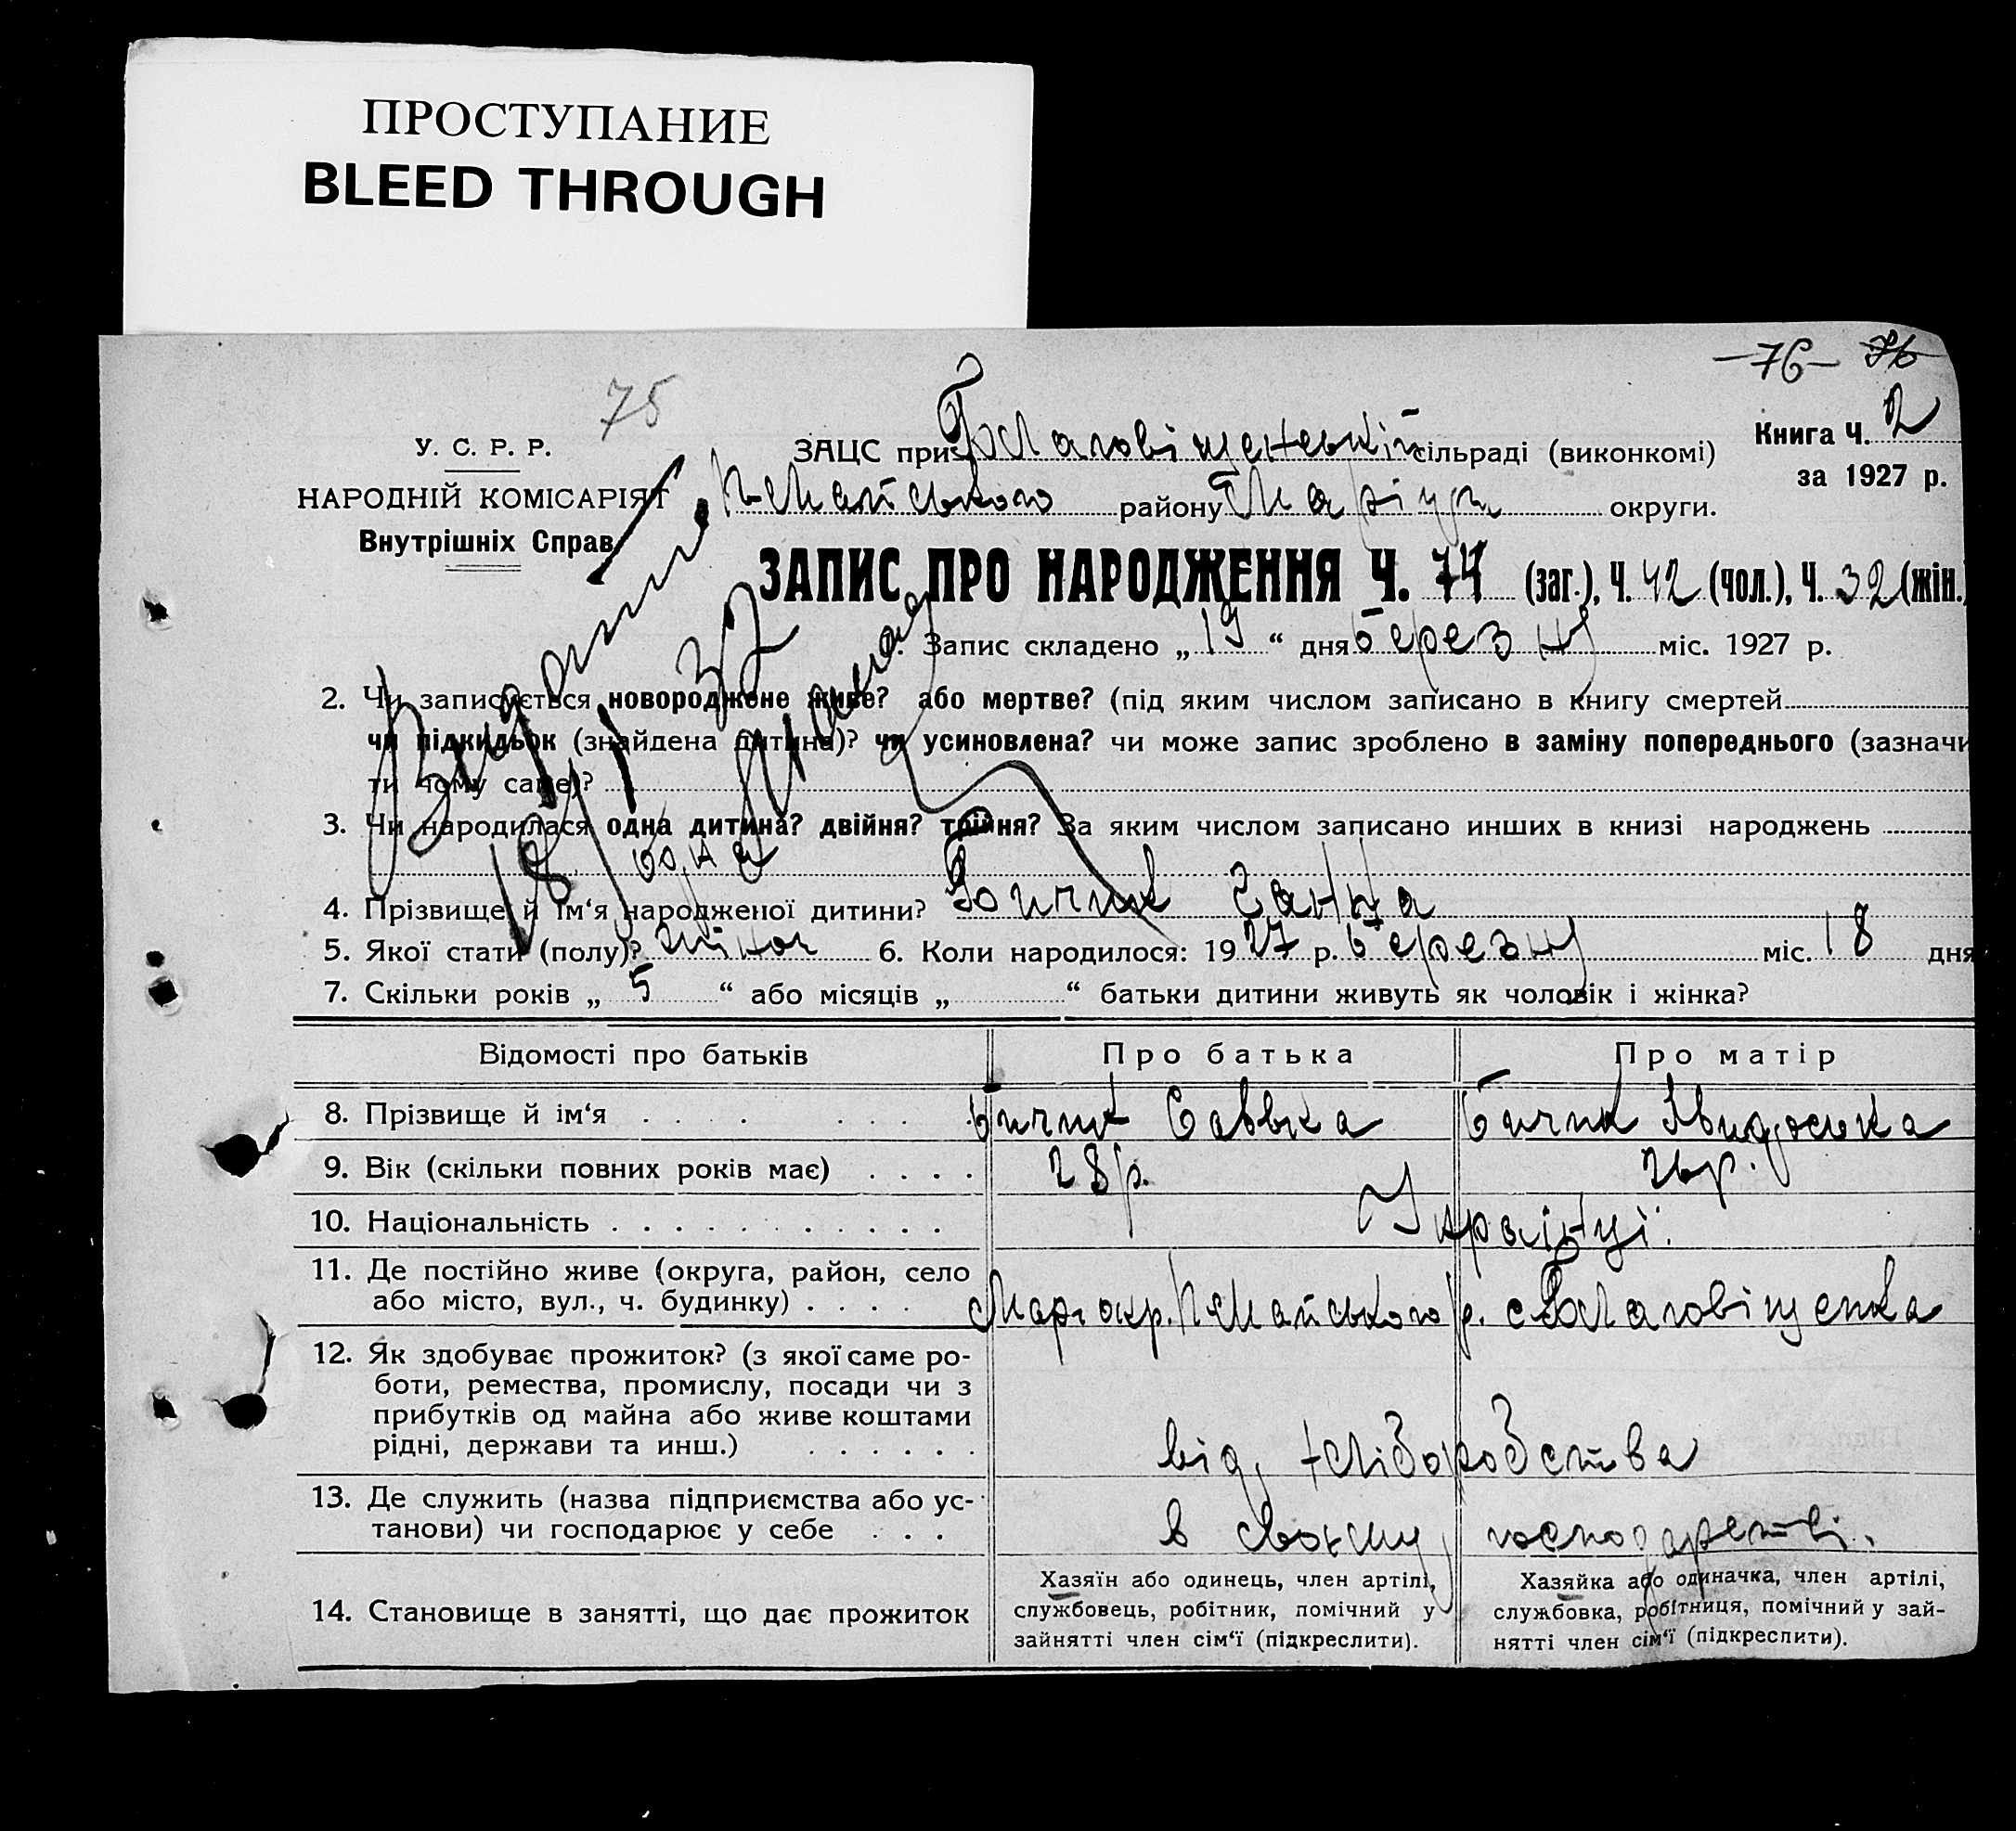 ПРОСТУПАНИЕ
BLEED THROUGH
-76- 76
75
У. С. Р. Р.
НАРОДНІЙ КОМІСАРІЯТ
Внутрішніх Справ
ЗАЦС при Благовіщенській сільраді (виконкомі)
Книга Ч. 2
за 1927 р.
району Маріуп округи.
ЗАПИС ПРО НАРОДЖЕННЯ Ч. 74 (заг.), Ч. 42 (чол.), Ч. 32 (жін.)
Запис складено „ 19 “ дня березня міс. 1927 р.
2. Чи записується новороджене живе? або мертве? (під яким числом записано в книгу смертей
чи підкидьок (знайдена дитина)? чи усиновлена? чи може запис зроблено в заміну попереднього (зазначи
ти чому саме)?
3. Чи народилася одна дитина? двійня? трійня? За яким числом записано инших в книзі народжень
одна
4. Прізвище й ім‘я народженої дитини? Бичик Ганна
5. Якої стати (полу)? жіноч 6. Коли народилося: 1927 р. березня міс. 18 дня
7. Скільки років „ 5 “ або місяців „ “ батьки дитини живуть як чоловік і жінка?
Відомості про батьків Про батька Про матір
8. Прізвище й ім‘я Бичик Саввка Бичик Явидоська
9. Вік (скільки повних років має) 28 р. 26 р.
10. Національність Українці
11. Де постійно живе (округа, район, село
або місто, вул., ч. будинку) Мар. окр. р. с. Благовіщенка
12. Як здобуває прожиток? (з якої саме ро-
боти, ремества, промислу, посади чи з
прибутків од майна або живе коштами
рідні, держави та инш.)
від хліборобства
13. Де служить (назва підприємства або ус-
танови) чи господарює у себе
в своєму господарстві.
14. Становище в занятті, що дає прожиток
Хазяїн або одинець, член артілі,
службовець, робітник, помічний у
зайнятті член сім‘ї (підкреслити).
Хазяйка або одиначка, член артілі,
службовка, робітниця, помічний у зай-
нятті член сім‘ї (підкреслити).